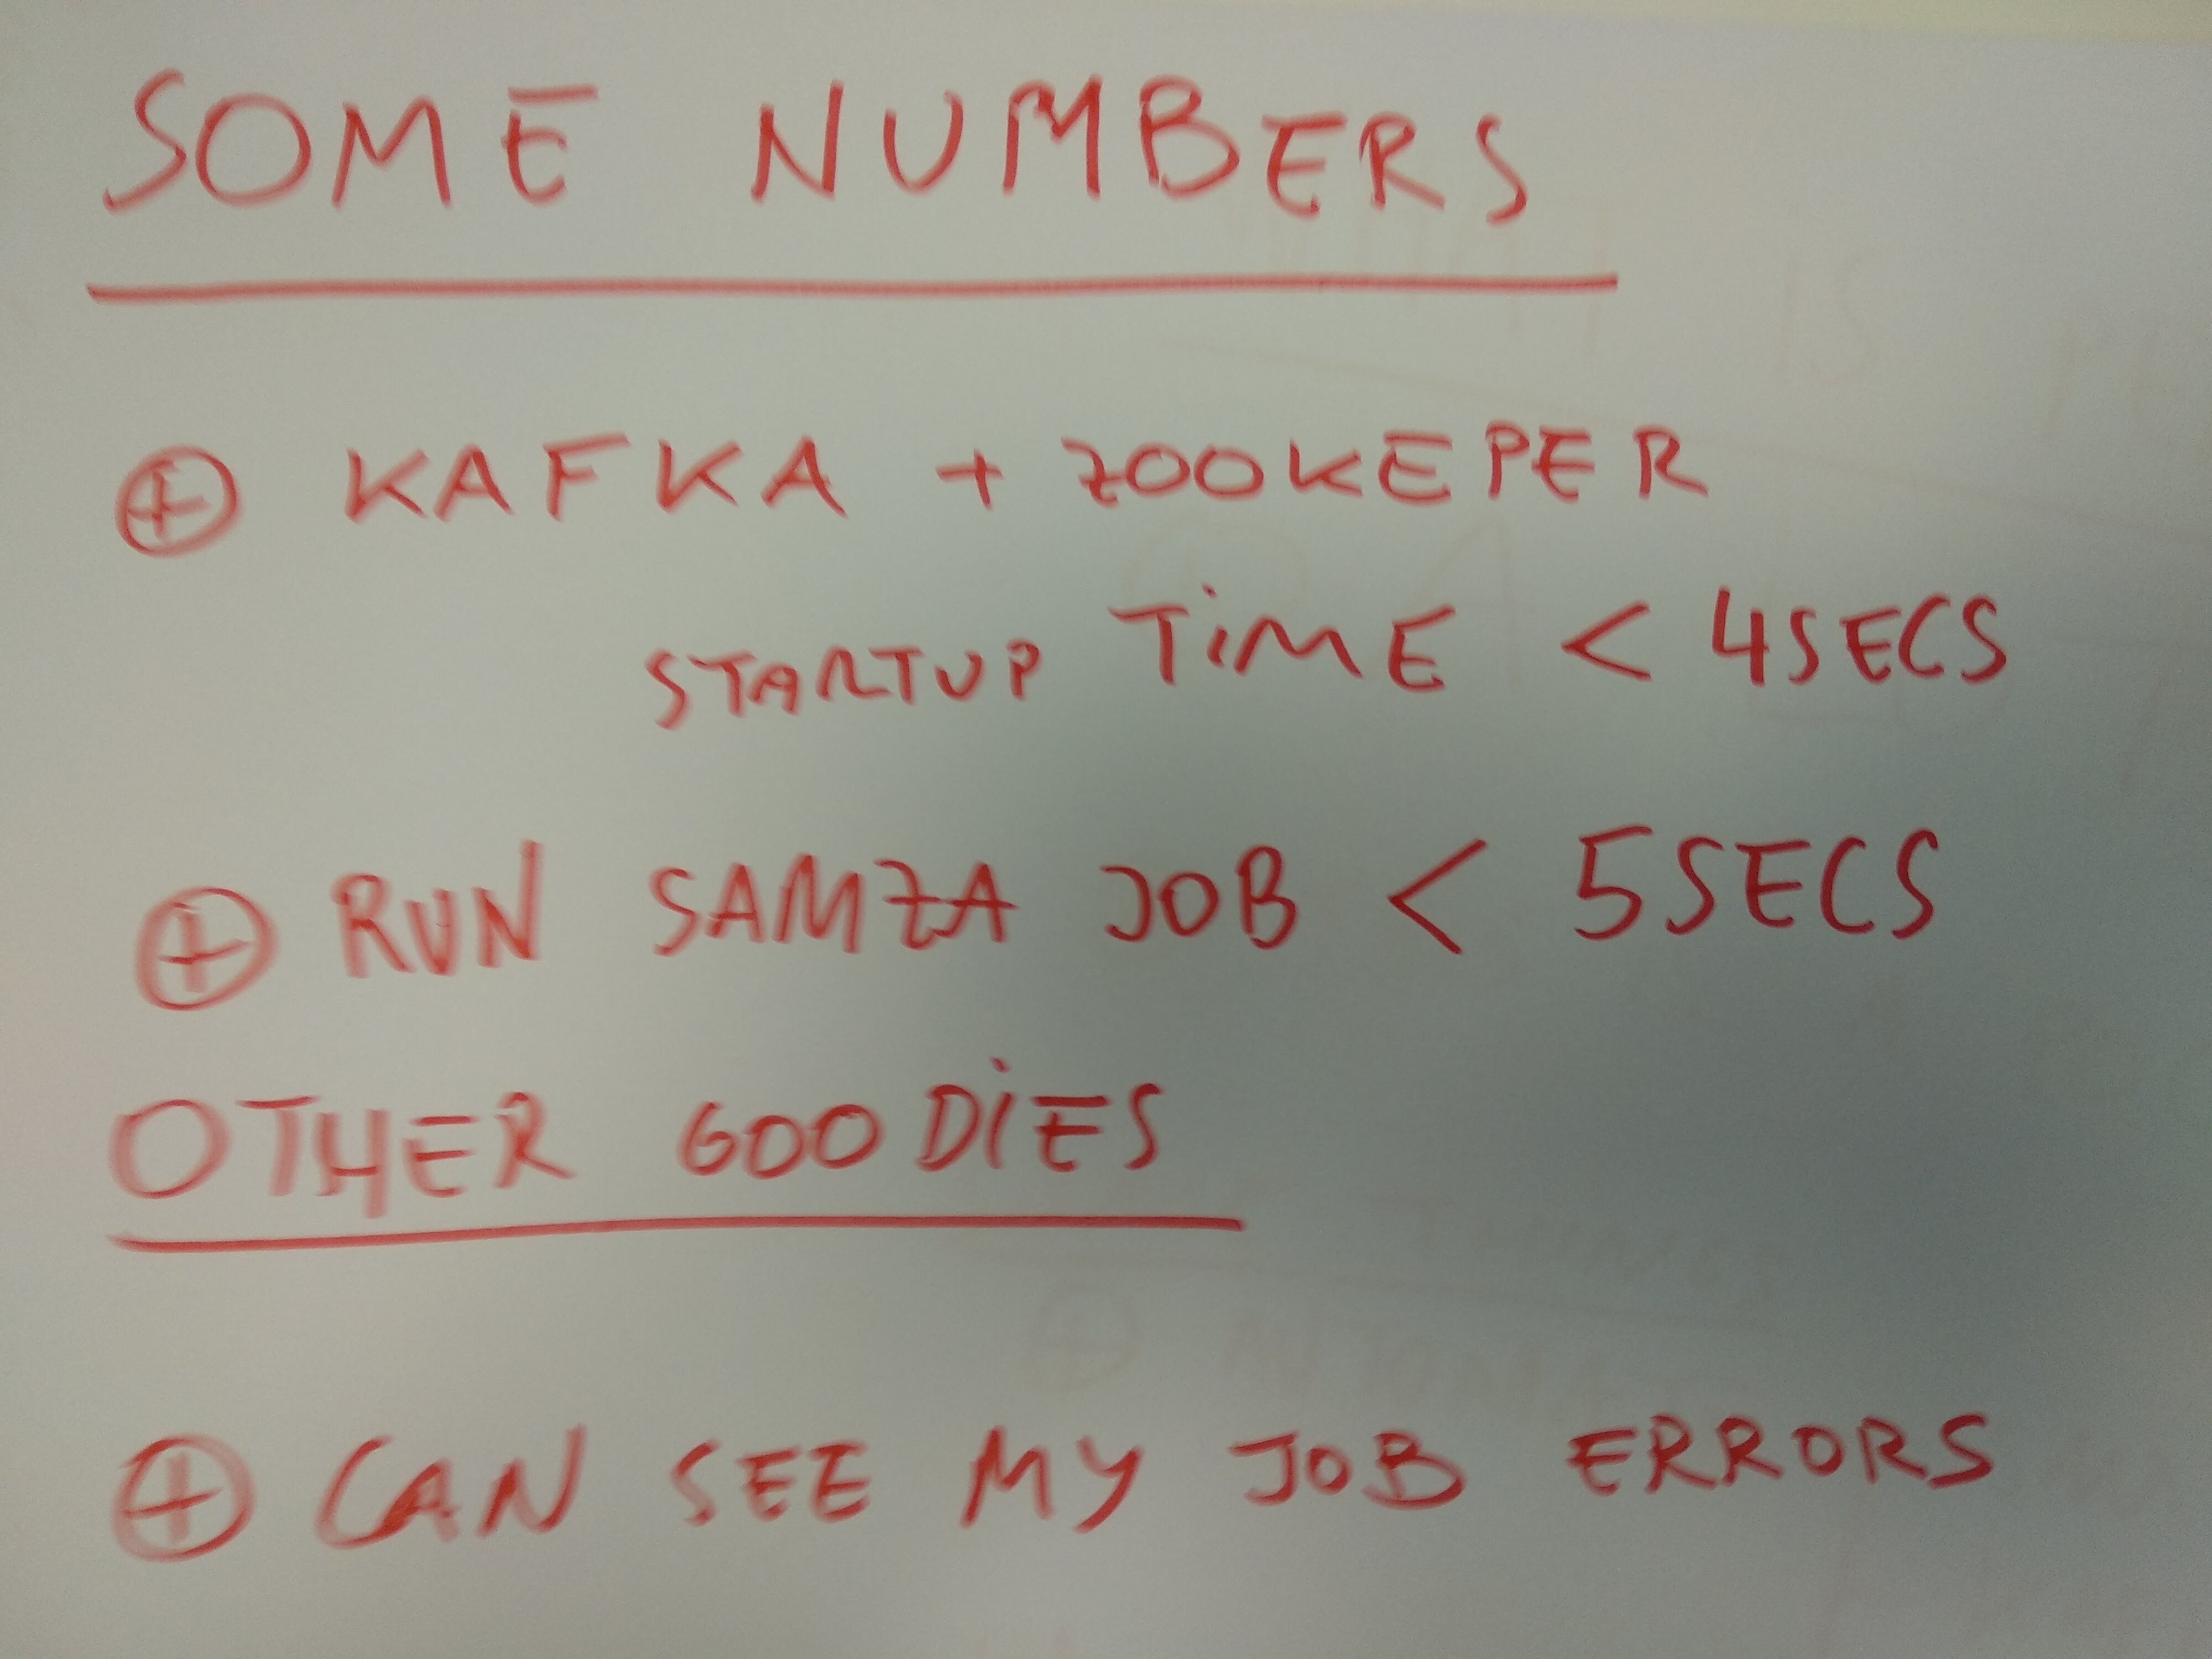 SOME NUMBERS
⊕ KAFKA + ZOOKEPER
STARTUP TiME < 4SECS
⊕ RUN SAMZA JOB < 5SECS
OTHER GOODiES
⊕ CAN SEE MY JOB ERRORS